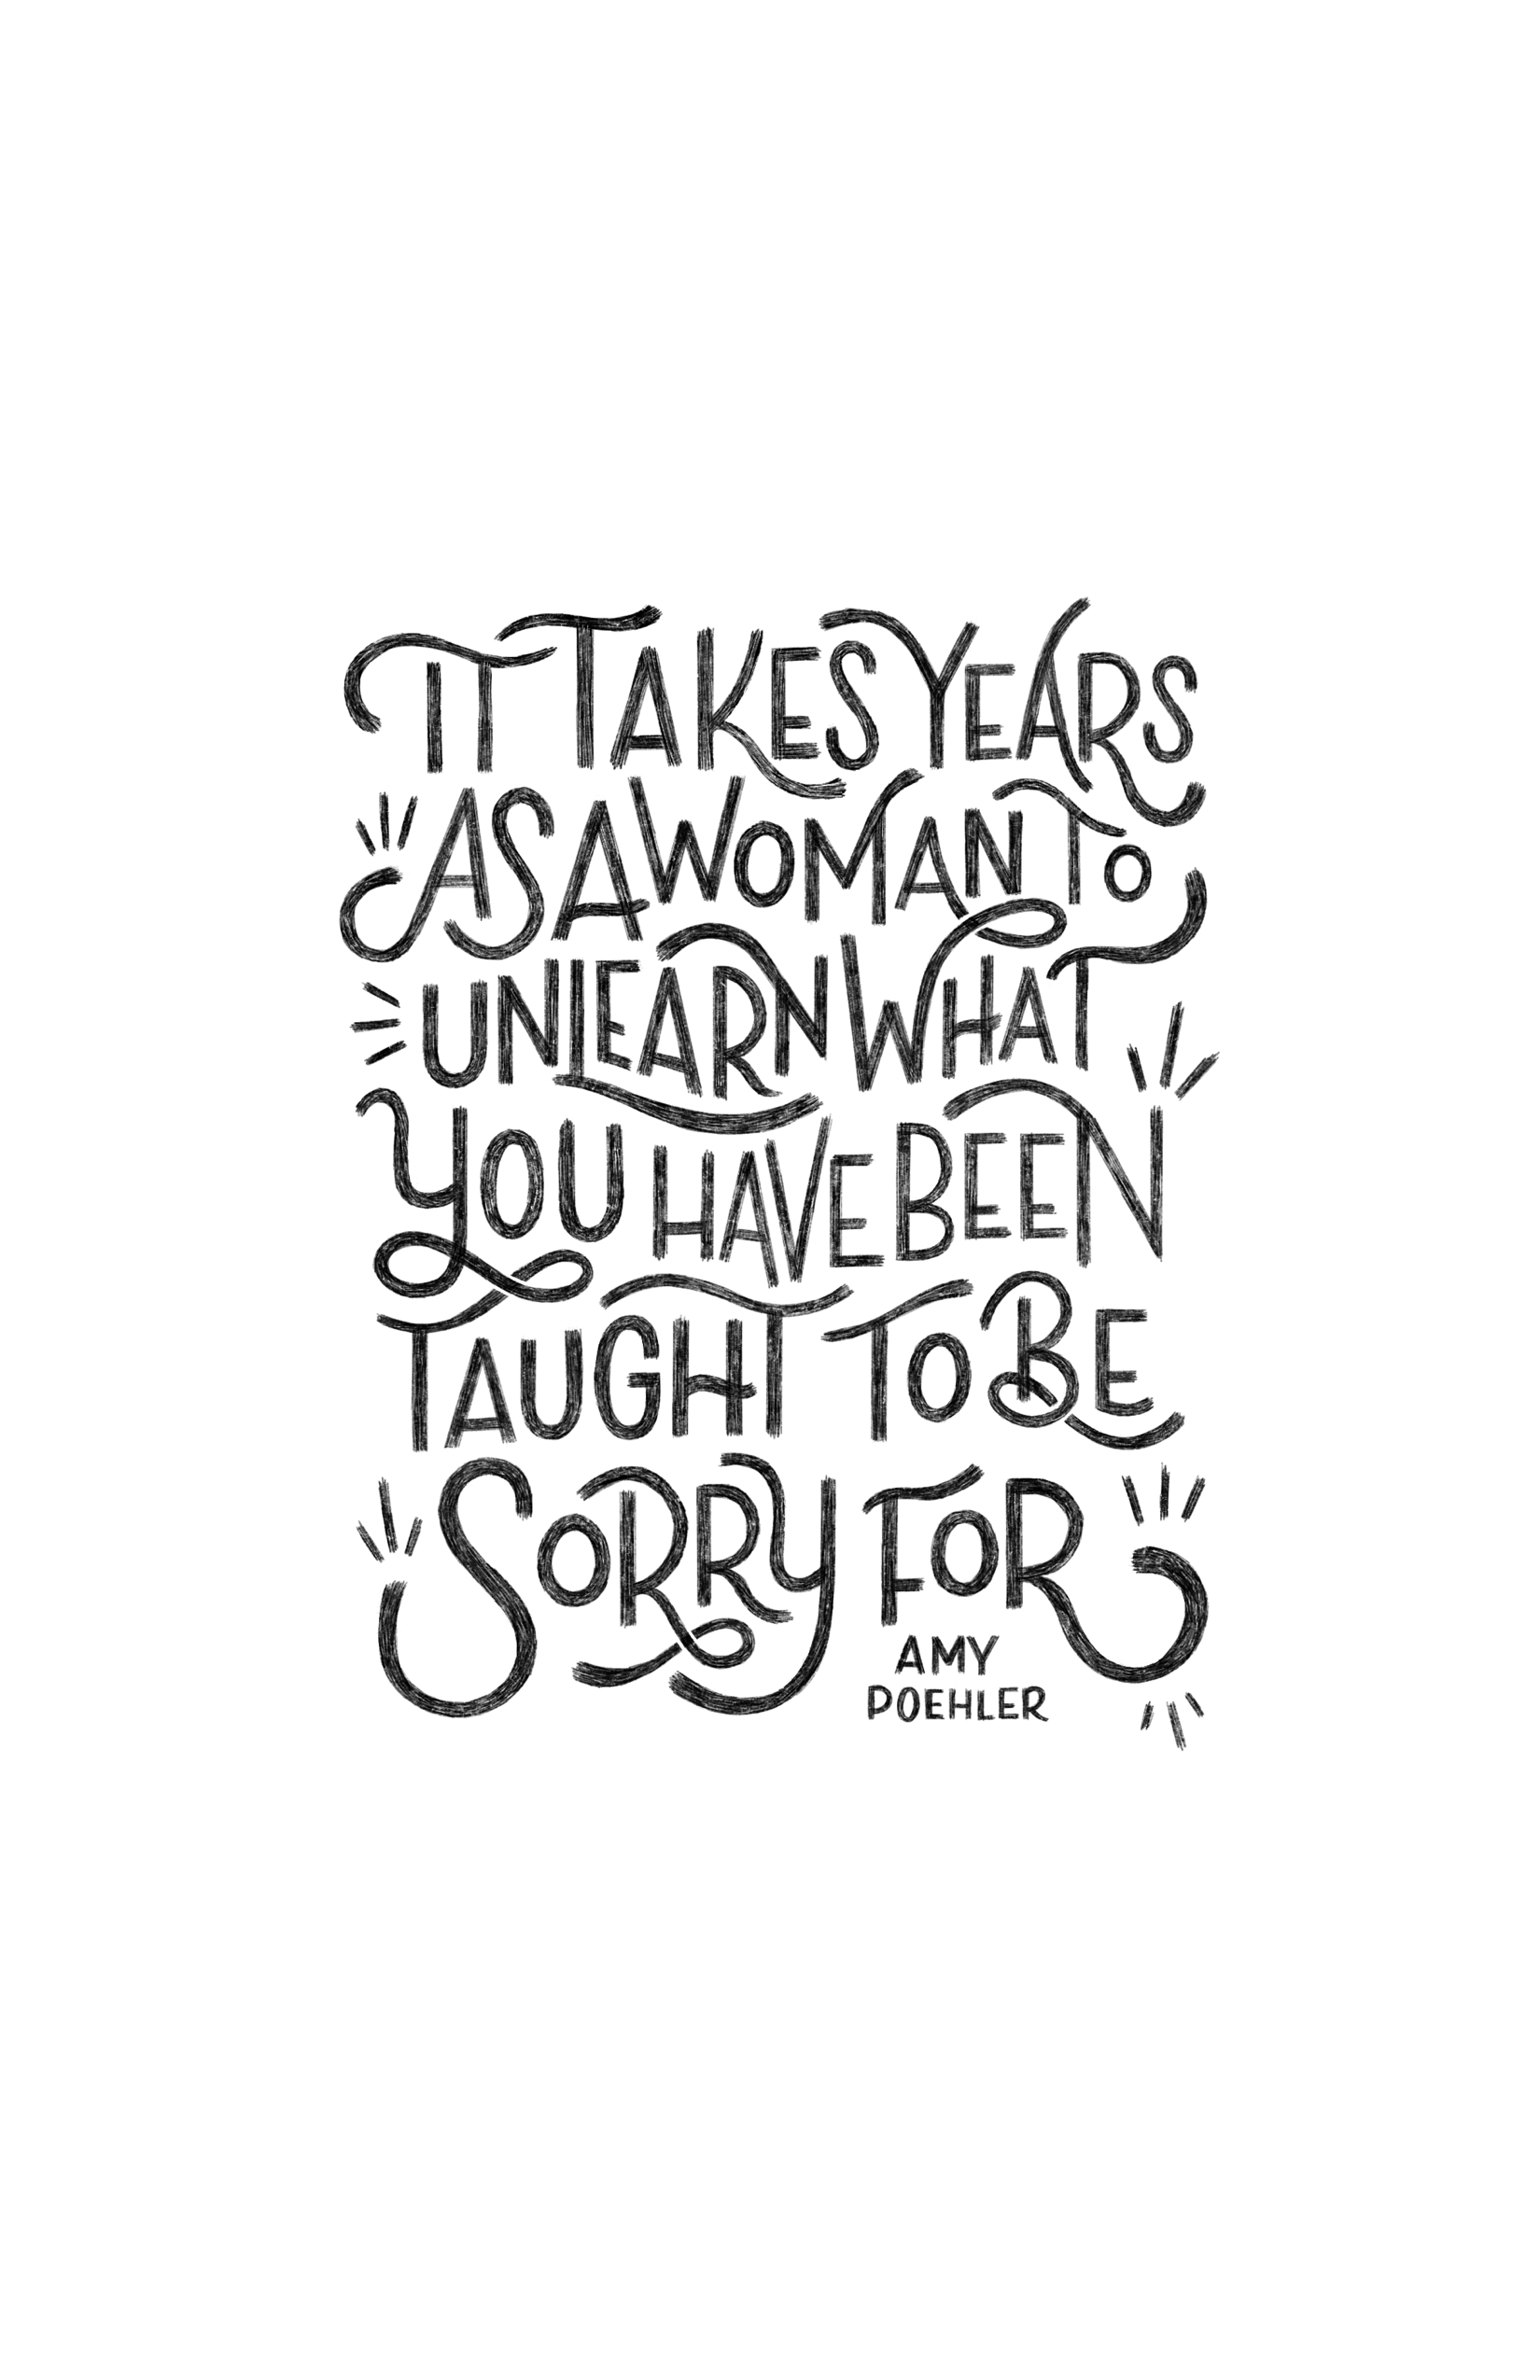 IT TAKES YEARS
AS A WOMAN TO
UNLEARN WHAT
YOU HAVE BEEN
TAUGHT TO BE
SORRY FOR
AMY
POEHLER